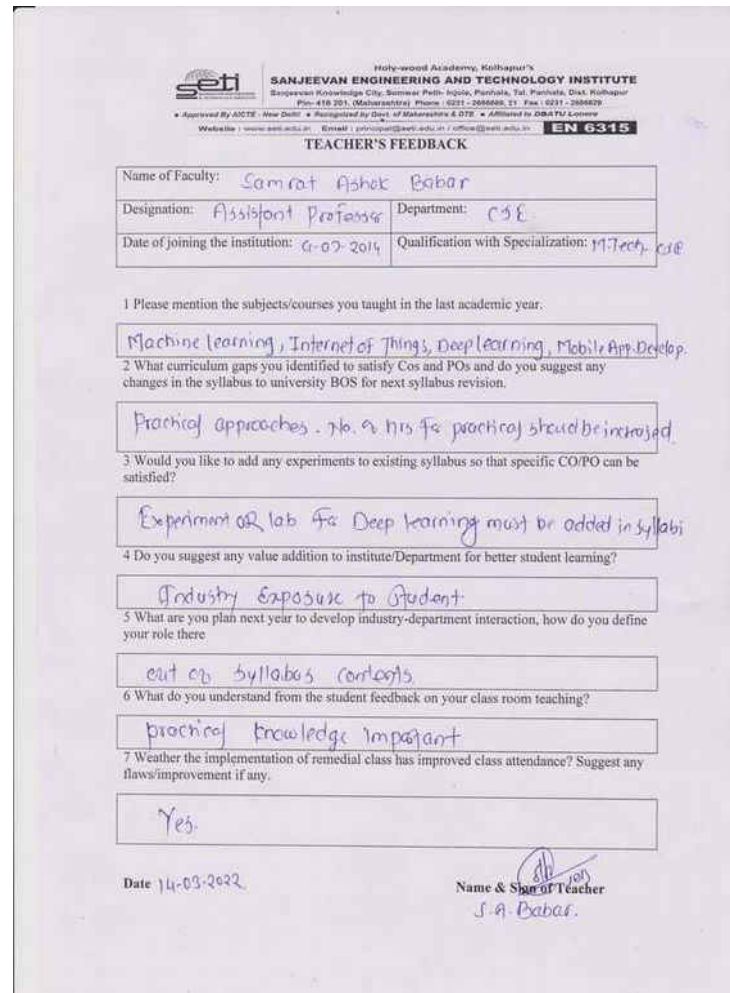 seti
Holy-wood Academy, Kolhapur's
SANJEEVAN ENGINEERING AND TECHNOLOGY INSTITUTE
Sanjeevan Knowledge City, Somwar Peth- Injole, Panhala, Tal. Panhala, Dist. Kolhapur
Pin- 416 201. (Maharashtra) Phone : 0231 - 2686600, 21 Fax : 0231 - 2686629
• Approved By AICTE - New Delhi • Recognized by Govt. of Maharashtra & DTE • Affiliated to DBATU Lonere
Website : www.seti.edu.in Email : principal@seti.edu.in / office@seti.edu.in EN 6315
TEACHER'S FEEDBACK
Name of Faculty: Samrat Ashok Babar
Designation: Assistant Professor Department: CSE
Date of joining the institution: 2014 Qualification with Specialization: M.Tech. CSE
1 Please mention the subjects/courses you taught in the last academic year.
Machine learning, Internet of Things, Deep learning, Mobile App. Develop.
2 What curriculum gaps you identified to satisfy Cos and POs and do you suggest any
changes in the syllabus to university BOS for next syllabus revision.
Practical approaches. No. of hrs for practical should be increased.
3 Would you like to add any experiments to existing syllabus so that specific CO/PO can be
satisfied?
Experiment OR lab for Deep learning must be added in syllabi
4 Do you suggest any value addition to institute/Department for better student learning?
Industry Exposure to Student.
5 What are you plan next year to develop industry-department interaction, how do you define
your role there
out of syllabus contents.
6 What do you understand from the student feedback on your class room teaching?
practical knowledge important
7 Weather the implementation of remedial class has improved class attendance? Suggest any
flaws/improvement if any.
Yes.
Date 14-03-2022
Name & Sign of Teacher
S.A. Babar.